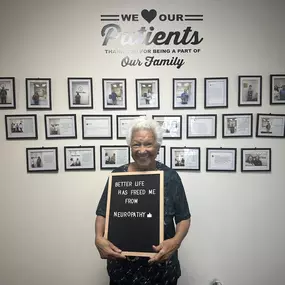 WE OUR
Patients
THANK YOU FOR BEING A PART OF
Our Family
BETTER LIFE
HAS FREED ME
FROM
NEUROPATHY